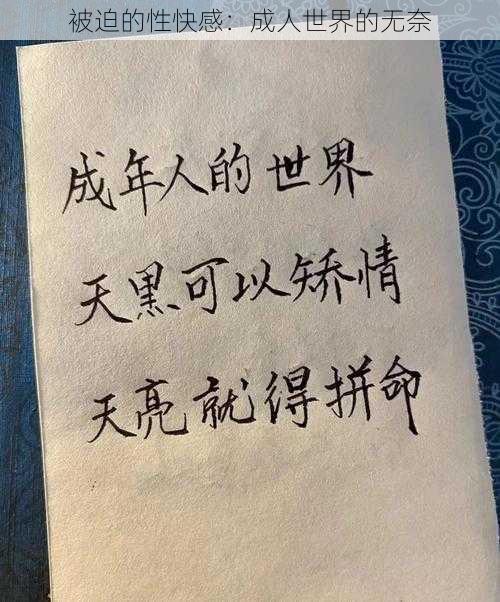 被迫的性快感：成人世界的无奈
成年人的世界
天黑可以矫情
天亮就得拼命